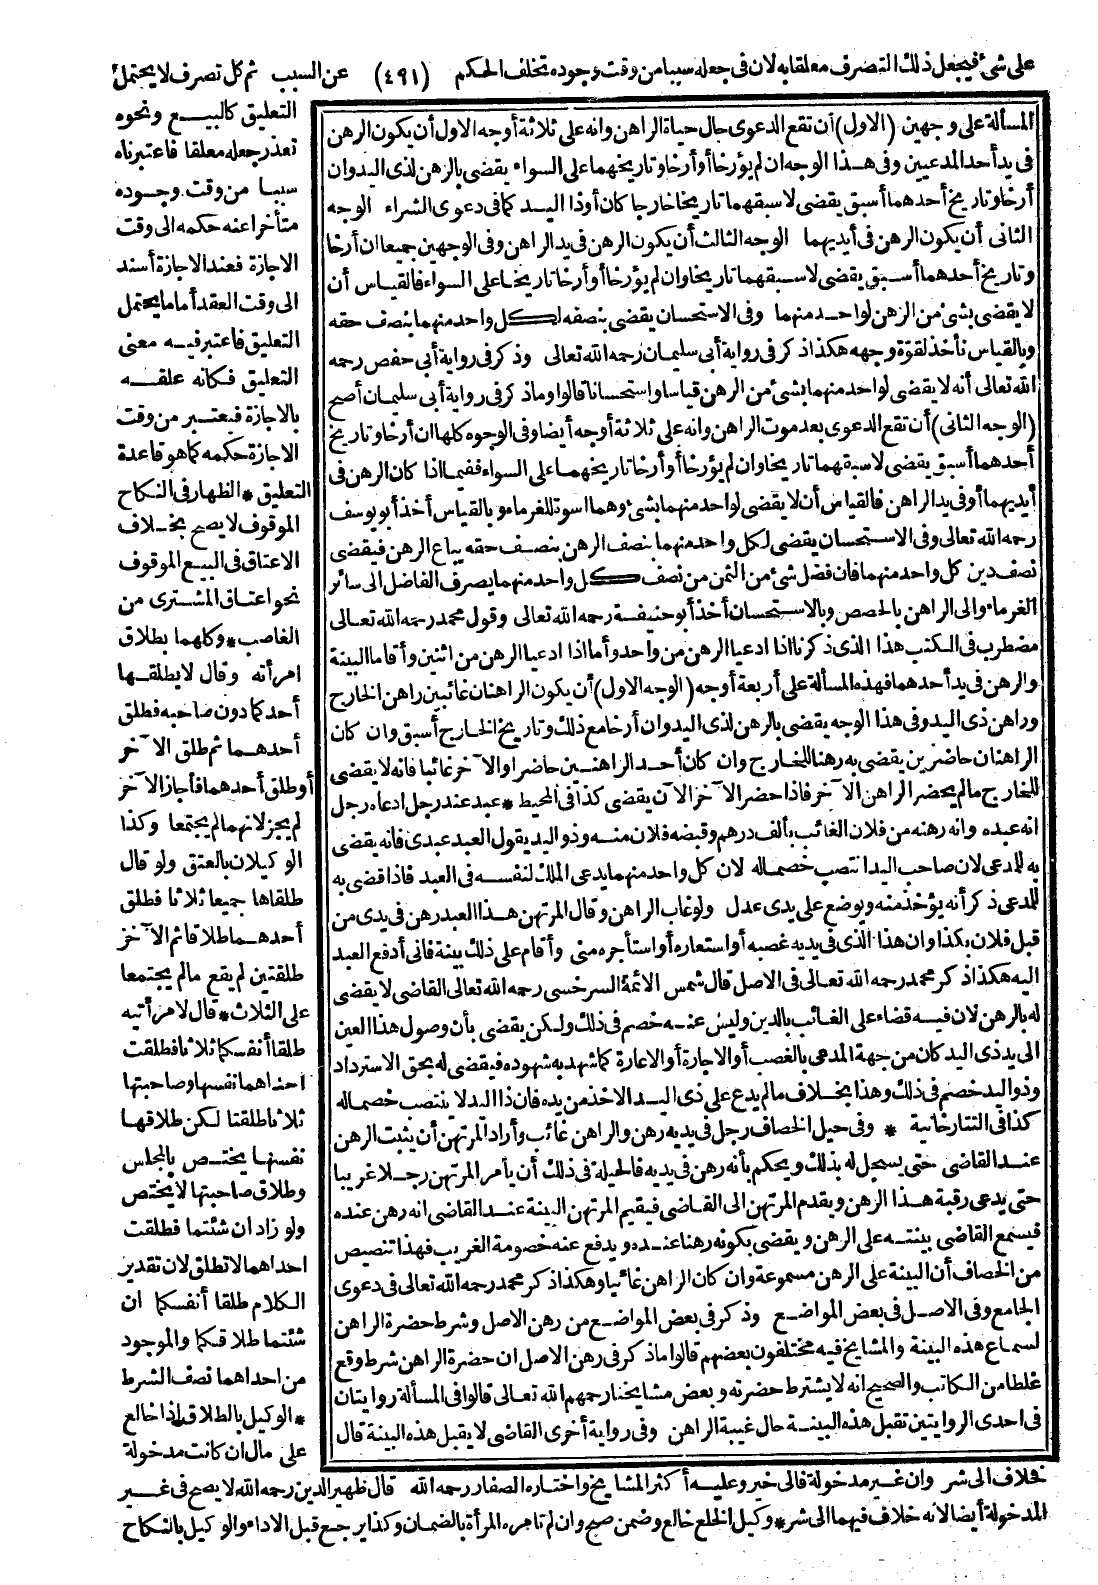 على شئ فيجعل ذلك التصرف معلقا به لان فى جعله سببا من وقت وجوده تخلف الحكم (٤٩١) عن السبب ثم كل تصرف لا يحتمل
المسألة على وجهين (الاول) أن تقع الدعوى حال حياة الراهن وانه على ثلاثة أوجه الاول أن يكون الرهن
فى يد أحد المدعيين وفى هذا الوجه ان لم يؤرخا أو أرخا وتاريخهما على السواء يقضى بالرهن لذى اليد وان
أرخا وتاريخ أحدهما أسبق يقضى لاسبقهما تاريخا خارجا كان أو ذا اليد كما فى دعوى الشراء الوجه
الثانى أن يكون الرهن فى أيديهما الوجه الثالث أن يكون الرهن فى يد الراهن وفى الوجهين جميعا ان أرخا
وتاريخ أحدهما أسبق يقضى لاسبقهما تاريخا وان لم يؤرخا أو أرخا تاريخا على السواء فالقياس أن
لا يقضى بشئ من الرهن لواحد منهما وفى الاستحسان يقضى بنصفه لكل واحد منهما بنصف حقه
وبالقياس نأخذ لقوة وجهه هكذا ذكر فى رواية أبى سليمان رحمه الله تعالى وذكر فى رواية أبى حفص رحمه
الله تعالى أنه لا يقضى لواحد منهما بشئ من الرهن قياسا واستحسانا قالوا وما ذكر فى رواية أبى سليمان أصح
(الوجه الثانى) أن تقع الدعوى بعد موت الراهن وانه على ثلاثة أوجه أيضا وفى الوجوه كلها ان أرخا وتاريخ
أحدهما أسبق يقضى لاسبقهما تاريخا وان لم يؤرخا أو أرخا تاريخهما على السواء ففيما اذا كان الرهن فى
أيديهما أو فى يد الراهن فالقياس أن لا يقضى لواحد منهما بشئ وهما اسوة للغرماء وبالقياس أخذ أبو يوسف
رحمه الله تعالى وفى الاستحسان يقضى لكل واحد منهما بنصف الرهن بنصف حقه يباع الرهن فيقضى
نصف دين كل واحد منهما فان فضل شئ من الثمن من نصف كل واحد منهما يصرف الفاضل الى سائر
الغرماء والى الراهن بالحصص وبالاستحسان أخذ أبو حنيفة رحمه الله تعالى وقول محمد رحمه الله تعالى
مضطرب فى الكتب هذا الذى ذكرنا اذا ادعيا الرهن من واحد وأما اذا ادعيا الرهن من اثنين وأقاما البينة
والرهن فى يد أحدهما فهذه المسألة على أربعة أوجه (الوجه الاول) أن يكون الراهنان غائبين راهن الخارج
وراهن ذى اليد وفى هذا الوجه يقضى بالرهن لذى اليد وان أرخا مع ذلك وتاريخ الخارج أسبق وان كان
الراهنان حاضرين يقضى به رهنا للخارج وان كان أحد الراهنين حاضرا والآخر غائبا فانه لا يقضى
للخارج ما لم يحضر الراهن الآخر فاذا حضر الآخر الآن يقضى كذا فى المحيط * عبد عند رجل ادعاه رجل
انه عبده وانه رهنه من فلان الغائب بألف درهم وقبضه فلان منه وذو اليد يقول العبد عبدى فانه يقضى
به للمدعى لان صاحب اليد انتصب خصما له لان كل واحد منهما يدعى الملك لنفسه فى العبد فاذا قضى به
للمدعى ذكر أنه يؤخذ منه ويوضع على يدى عدل ولو غاب الراهن وقال المرتهن هذا العبد رهن فى يدى من
قبل فلان بكذا وان هذا الذى فى يديه غصبه أو استعاره أو استأجره منى وأقام على ذلك بينة فانى أدفع العبد
اليه هكذا ذكر محمد رحمه الله تعالى فى الاصل قال شمس الائمة السرخسى رحمه الله تعالى القاضى لا يقضى
له بالرهن لان فيه قضاء على الغائب بالدين وليس عنه خصم فى ذلك ولكن يقضى بأن وصول هذا العين
الى يد ذى اليد كان من جهة المدعى بالغصب أو الاجارة أو الاعارة كما شهد به شهوده فيقضى له بحق الاسترداد
وذو اليد خصم فى ذلك وهذا بخلاف ما لم يدع على ذى اليد الاخذ من يده فان ذا اليد لا ينتصب خصما له
كذا فى التتارخانية * وفى حيل الخصاف رجل فى يديه رهن والراهن غائب وأراد المرتهن أن يثبت الرهن
عند القاضى حتى يسجل له بذلك ويحكم بأنه رهن فى يديه فالحيلة فى ذلك أن يأمر المرتهن رجلا غريبا
حتى يدعى رقبة هذا الرهن ويقدم المرتهن الى القاضى فيقيم المرتهن البينة عند القاضى انه رهن عنده
فيسمع القاضى بينته على الرهن ويقضى بكونه رهنا عنده ويدفع عنه خصومة الغريب فهذا تنصيص
من الخصاف أن البينة على الرهن مسموعة وان كان الراهن غائبا وهكذا ذكر محمد رحمه الله تعالى فى دعوى
الجامع وفى الاصل فى بعض المواضع وذكر فى بعض المواضع من رهن الاصل وشرط حضرة الراهن
لسماع هذه البينة والمشايخ فيه مختلفون بعضهم قالوا ما ذكر فى رهن الاصل ان حضرة الراهن شرط وقع
غلطا من الكاتب والصحيح انه لا يشترط حضرته وبعض مشايخنا رحمهم الله تعالى قالوا فى المسألة روايتان
فى احدى الروايتين تقبل هذه البينة حال غيبة الراهن وفى رواية أخرى القاضى لا يقبل هذه البينة قال
التعليق كالبيع ونحوه
تعذر جعله معلقا فاعتبرناه
سببا من وقت وجوده
متأخرا عنه حكمه الى وقت
الاجازة فعند الاجازة أسند
الى وقت العقد أما ما يحتمل
التعليق فاعتبر فيه معنى
التعليق فكانه علقه
بالاجازة فيعتبر من وقت
الاجازة حكمه كما هو قاعدة
التعليق * الظهار فى النكاح
الموقوف لا يصح بخلاف
الاعتاق فى البيع الموقوف
نحو اعتاق المشترى من
الغاصب * وكلهما بطلاق
امرأته وقال لا يطلقها
أحدكما دون صاحبه فطلق
أحدهما ثم طلق الآخر
أو طلق أحدهما فأجاز الآخر
لم يجز لانهما لم يجتمعا وكذا
الوكيلان بالعتق ولو قال
طلقاها جميعا ثلاثا فطلق
أحدهما طلاقا ثم الآخر
طلقتين لم يقع ما لم يجتمعا
على الثلاث * قال لامرأتيه
طلقا أنفسكما ثلاثا فطلقت
احداهما نفسها وصاحبتها
ثلاثا طلقتا لكن طلاقها
نفسها يختص بالمجلس
وطلاق صاحبتها لا يختص
ولو زاد ان شئتما فطلقت
احداهما لا تطلق لان تقدير
الكلام طلقا أنفسكما ان
شئتما طلاقكما والموجود
من احداهما نصف الشرط
* الوكيل بالطلاق اذا خالع
على مال ان كانت مدخولة
خلاف الى شر وان غير مدخولة فالى خير وعليه أكثر المشايخ واختاره الصفار رحمه الله قال ظهير الدين رحمه الله لا يصح فى غير
المدخولة أيضا لانه خلاف فيهما الى شر * وكيل الخلع خالع وضمن صح وان لم تامره المرأة بالضمان وكذا يرجع قبل الاداء والوكيل بالنكاح